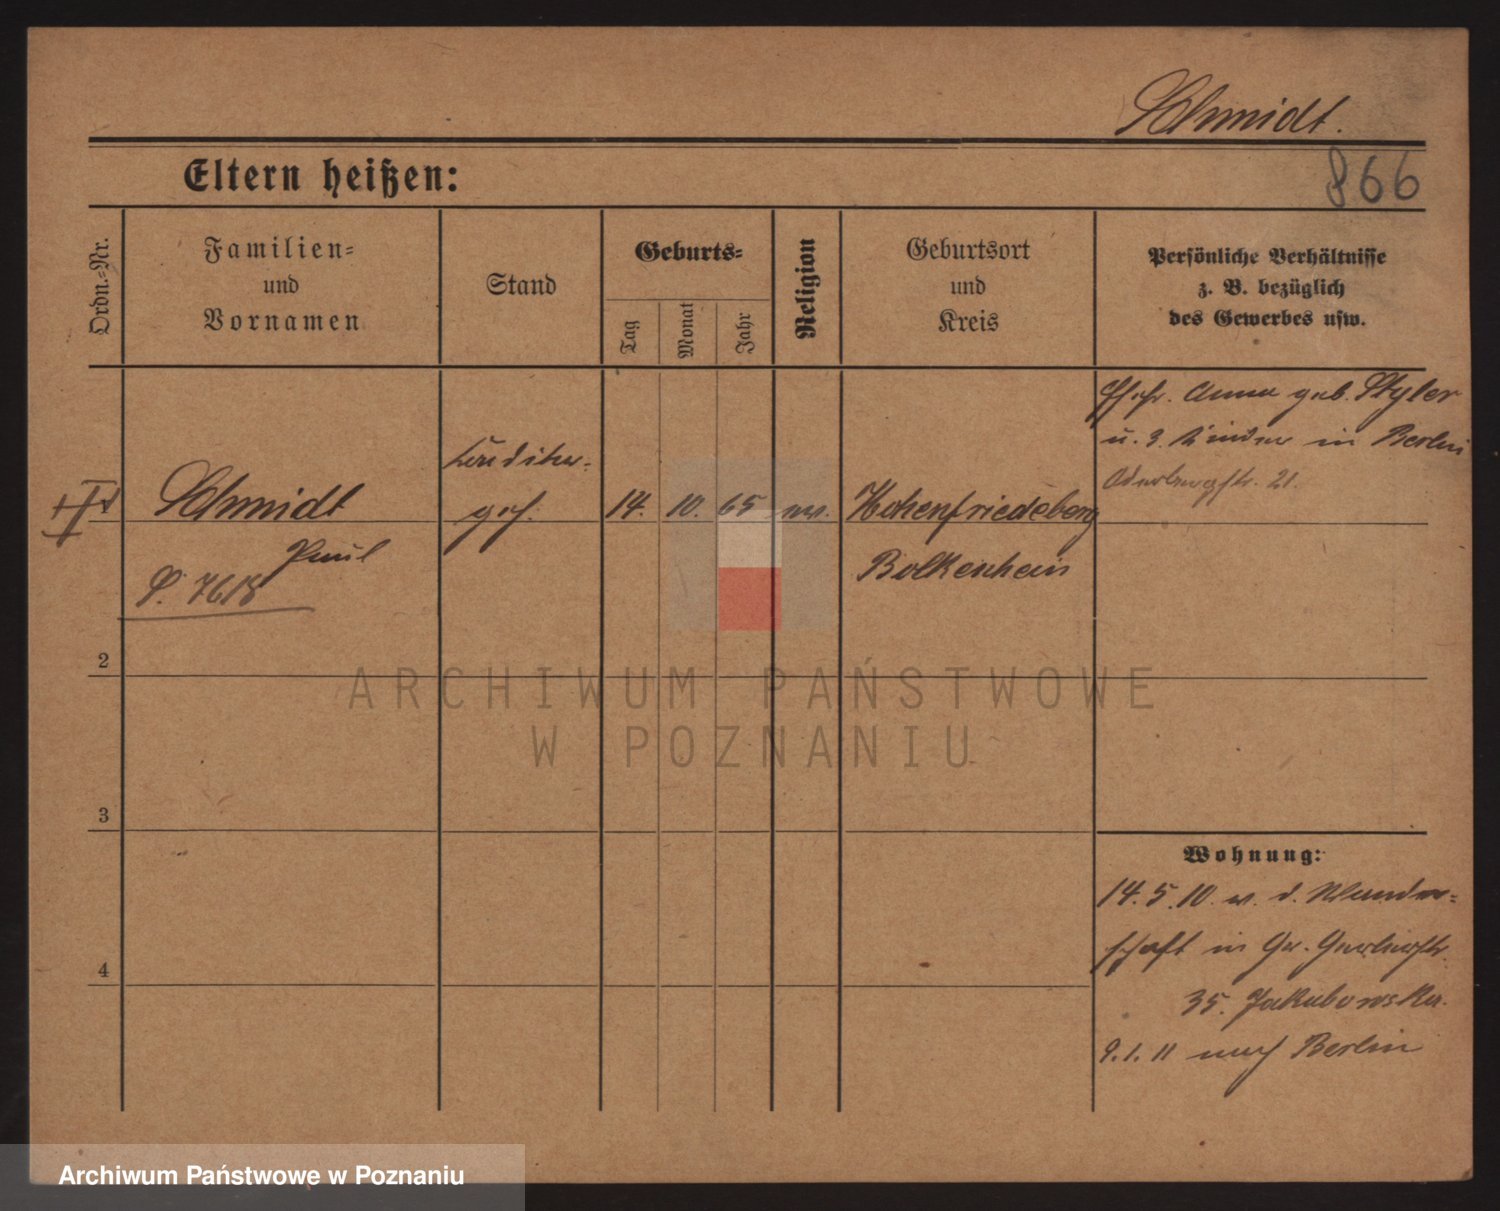 Schmidt.
Eltern heißen:
866
Ordn.-Nr.
Familien-
und
Vornamen
Stand
Geburts-
Tag
Monat
Jahr
Religion
Geburtsort
und
Kreis
Persönliche Verhältnisse
z. B. bezüglich
des Gewerbes usw.
Schmidt
Paul
P. 7618
Konditor-
geh.
14.
10.
65
ev.
Hohenfriedeberg
Bolkenhain
Ehefr. Anna geb. Styler
u. 3 Kinder in Berlin
Oderbergstr. 21.
2
3
4
Wohnung:
14.5.10. v. d. Wander-
schaft in Gr. Gerberstr.
35. Jakubowska.
9.1.11 nach Berlin
ARCHIWUM PAŃSTWOWE
W POZNANIU
Archiwum Państwowe w Poznaniu